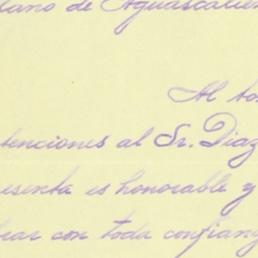 lano de Aguascalien
Al to
tenciones al Sr. Diaz
esenta es honorable y
rar con toda confianz